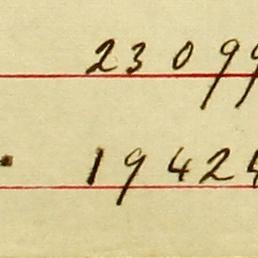 23099
19424